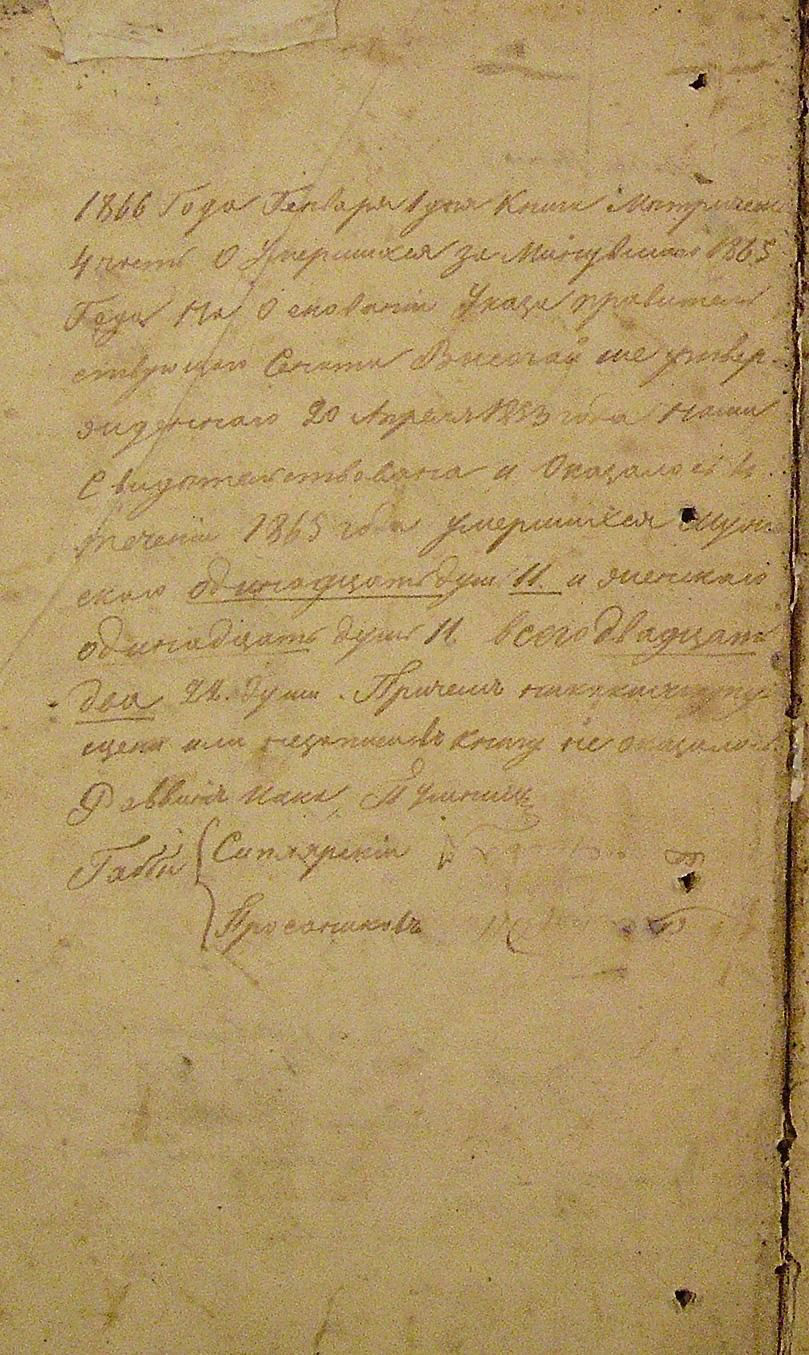 1866 Года Генваря 1 дня Книга Метрическ
4 часть О Умершихся за Минувший 1865
Годъ На Основаніи Указа правитель
ствующаго Сената Высочайше утвер-
жденнаго 20 Апреля 1853 года нами
Свидетельствована и Оказалось въ
теченіи 1865 года умершихся муж
скаго одинадцать душ 11 и женскаго
одинадцать душъ 11 всего двадцать
два 22. души. Причемъ
или въ книгу не оказалось
Раввинъ
Габби Столярскій
Просяниковъ